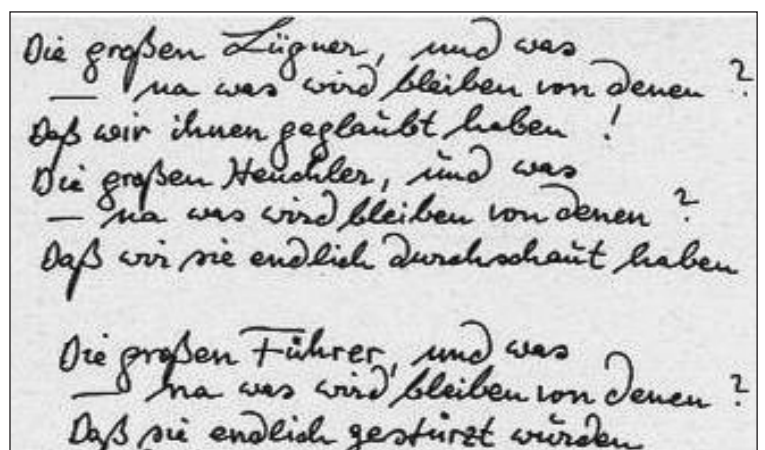 Die großen Lügner, und was
— na was wird bleiben von denen ?
Daß wir ihnen geglaubt haben !
Die großen Heuchler, und was
— na was wird bleiben von denen ?
Daß wir sie endlich durchschaut haben
Die großen Führer, und was
— na was wird bleiben von denen ?
Daß sie endlich gestürzt wurden